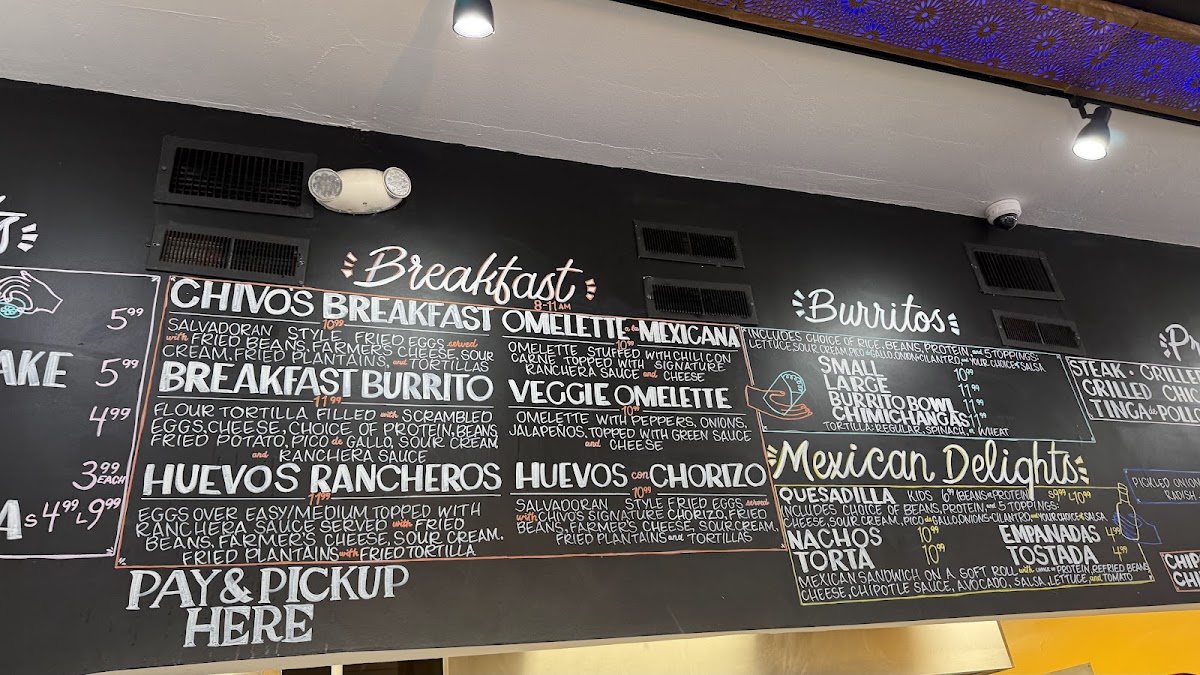 5.99
AKE 5.99
4.99
3.99 EACH
A S 4.99 L 9.99
Breakfast
8-11AM
CHIVOS BREAKFAST
10.99
SALVADORAN STYLE FRIED EGGS served
with FRIED BEANS, FARMER'S CHEESE, SOUR
CREAM, FRIED PLANTAINS, and TORTILLAS
BREAKFAST BURRITO
11.99
FLOUR TORTILLA FILLED with SCRAMBLED
EGGS, CHEESE, CHOICE OF PROTEIN, BEANS
FRIED POTATO, PICO de GALLO, SOUR CREAM,
and RANCHERA SAUCE
HUEVOS RANCHEROS
11.99
EGGS OVER EASY/MEDIUM TOPPED WITH
RANCHERA SAUCE SERVED with FRIED
BEANS, FARMER'S CHEESE, SOUR CREAM,
FRIED PLANTAINS with FRIED TORTILLA
OMELETTE a la MEXICANA
10.99
OMELETTE STUFFED WITH CHILI CON
CARNE TOPPED WITH SIGNATURE
RANCHERA SAUCE and CHEESE
VEGGIE OMELETTE
10.99
OMELETTE WITH PEPPERS, ONIONS,
JALAPENOS, TOPPED WITH GREEN SAUCE
and CHEESE
HUEVOS con CHORIZO
10.99
SALVADORAN STYLE FRIED EGGS served
with CHIVOS SIGNATURE CHORIZO, FRIED
BEANS, FARMER'S CHEESE, SOUR CREAM,
FRIED PLANTAINS and TORTILLAS
PAY & PICKUP
HERE
Burritos
INCLUDES CHOICE OF RICE, BEANS, PROTEIN, and 5 TOPPINGS:
LETTUCE, SOUR CREAM, PICO de GALLO, ONION-CILANTRO, and YOUR CHOICE of SALSA
SMALL 10.99
LARGE 11.99
BURRITO BOWL 11.99
CHIMICHANGAS 11.99
TORTILLA: REGULAR, SPINACH, or WHEAT
Mexican Delights
QUESADILLA KIDS 6.99 (BEANS or PROTEIN) S 9.99 L 10.99
INCLUDES CHOICE OF BEANS, PROTEIN and 5 TOPPINGS:
CHEESE, SOUR CREAM, PICO de GALLO, ONIONS-CILANTRO, and YOUR CHOICE of SALSA
NACHOS 10.99
EMPANADAS 4.99
TORTA 10.99
TOSTADA 4.99
MEXICAN SANDWICH ON A SOFT ROLL with CHOICE of PROTEIN, REFRIED BEANS
CHEESE, CHIPOTLE SAUCE, AVOCADO, SALSA, LETTUCE, and TOMATO
Pr
STEAK • GRILLE
GRILLED CHIC
TINGA de POLL
PICKLED ONION
RADISH
CHIP
CH